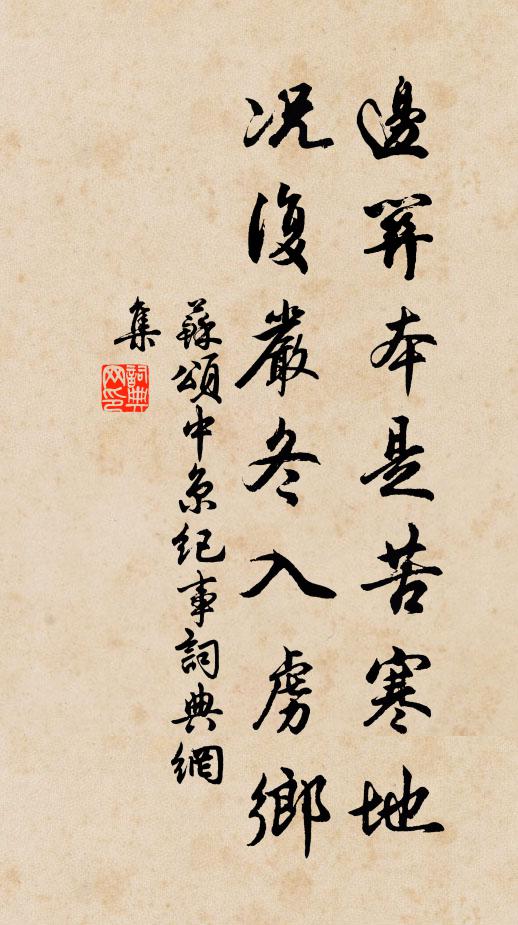 邊關本是苦寒地
況復嚴冬入虜鄉
蘇頌中京紀事詞典網
集
詞典
网印